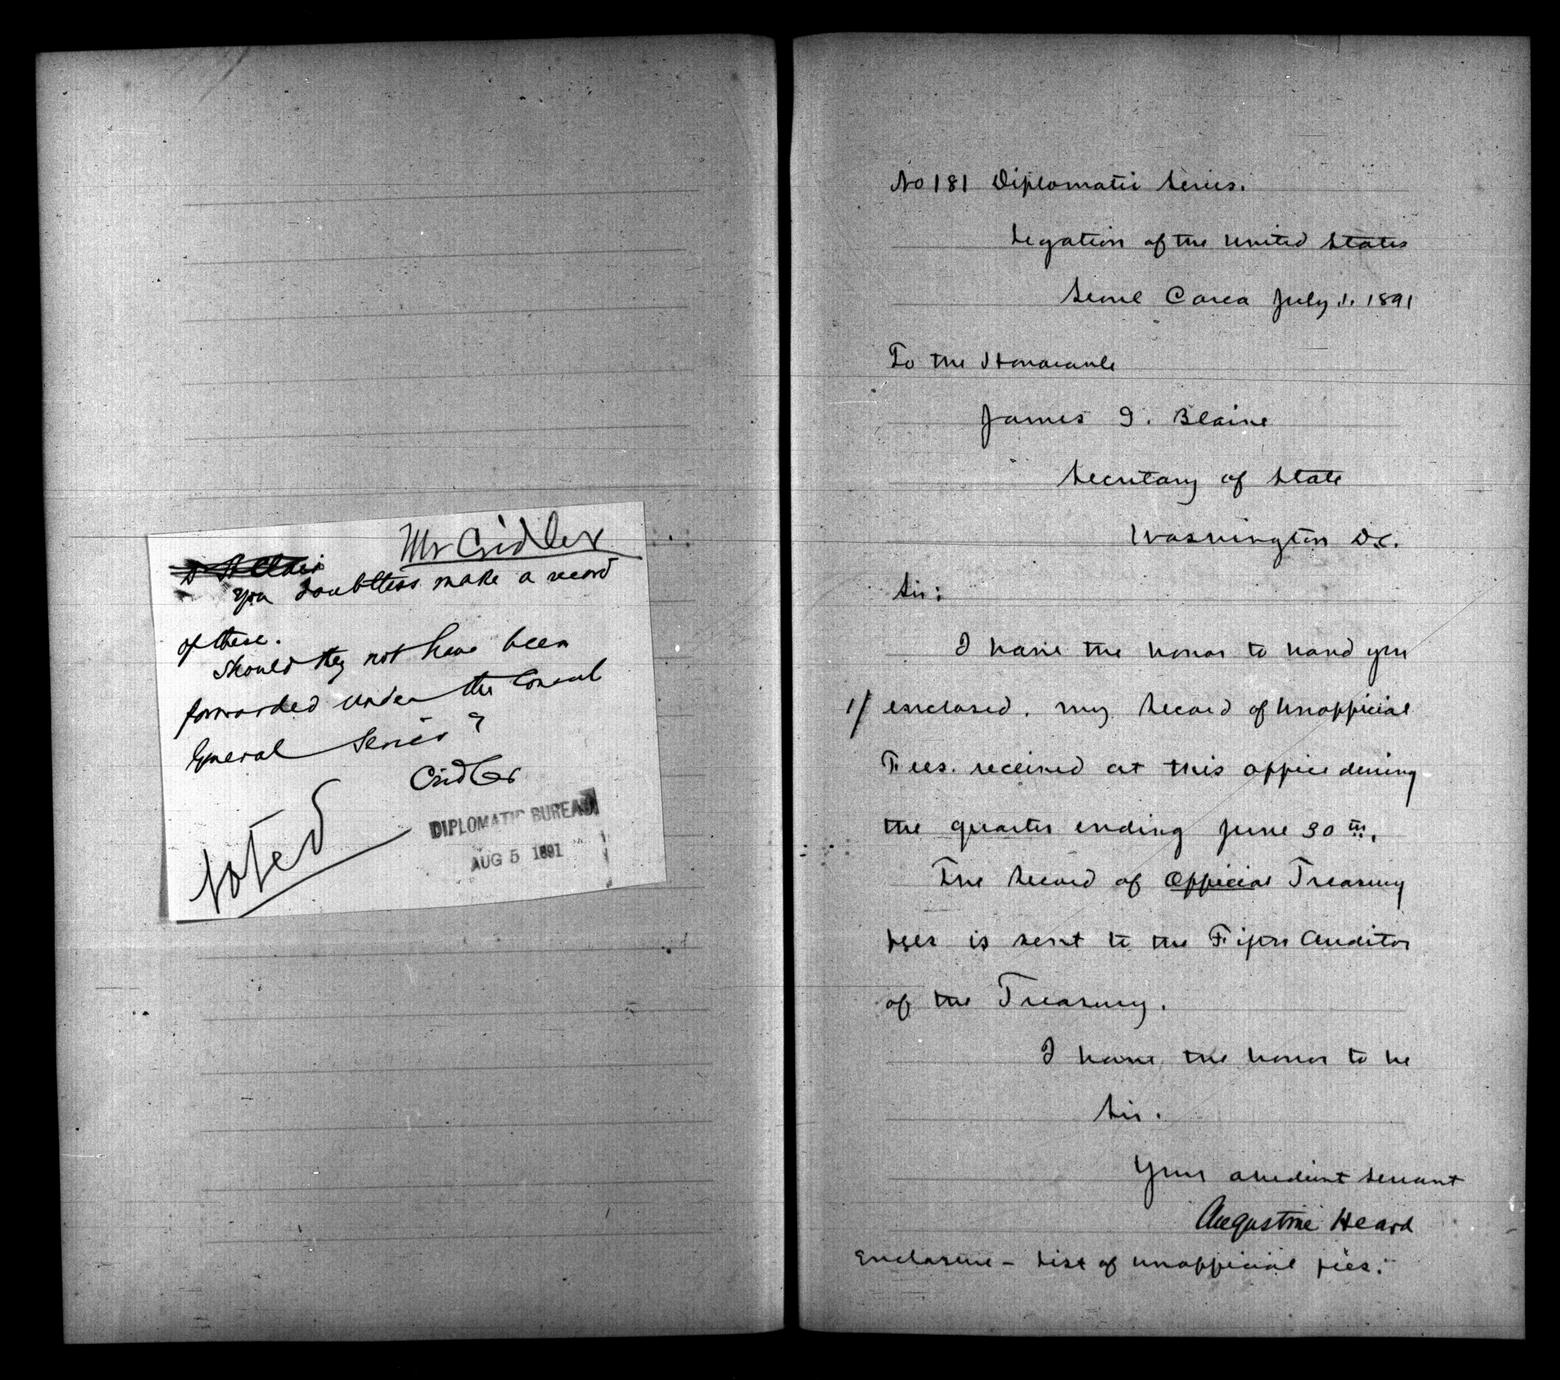 Mr Cridler
D St Clair
You doubtless make a record
of these.
Should they not have been
forwarded under the Consul
General Series?
Cridler
Noted
DIPLOMATIC BUREAU
AUG 5 1891
No 181 Diplomatic Series.
Legation of the United States
Seoul Corea July 1. 1891
To the Honorable
James G. Blaine
Secretary of State
Washington D.C.
Sir:
I have the honor to hand you
1/ enclosed, my Record of Unofficial
Fees. received at this office during
the quarter ending June 30th.
The Record of Official Treasury
fees is sent to the Fifth Auditor
of the Treasury.
I have the honor to be
Sir.
Your obedient servant
Augustine Heard
Enclosure - List of unofficial fees.